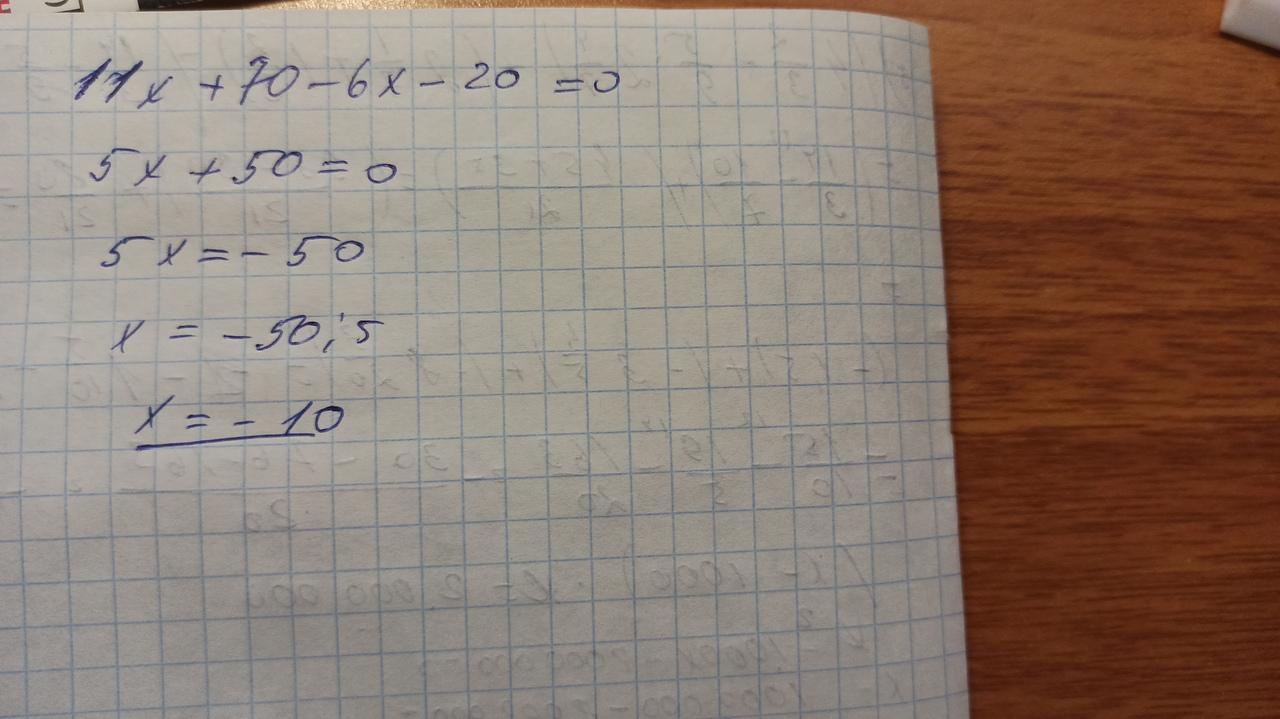 11x + 70 - 6x - 20 = 0
5x + 50 = 0
5x = - 50
x = - 50 : 5
x = - 10